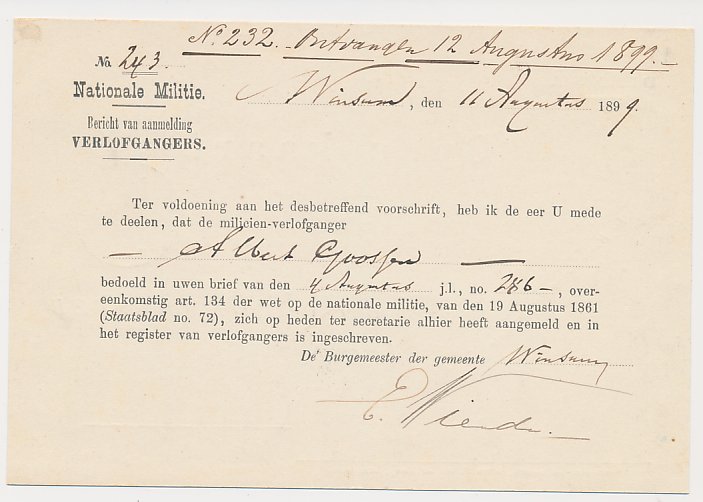 No. 232. Ontvangen 12 Augustus 1899.—
No. 243.
Nationale Militie.
Winsum, den 11 Augustus 1899.
Bericht van aanmelding
VERLOFGANGERS.
Ter voldoening aan het desbetreffend voorschrift, heb ik de eer U mede
te deelen, dat de milicien-verlofganger
— Albert Goossen —
bedoeld in uwen brief van den 4 Augustus j.l., no. 286 —, over-
eenkomstig art. 134 der wet op de nationale militie, van den 19 Augustus 1861
(Staatsblad no. 72), zich op heden ter secretarie alhier heeft aangemeld en in
het register van verlofgangers is ingeschreven.
De Burgemeester der gemeente Winsum